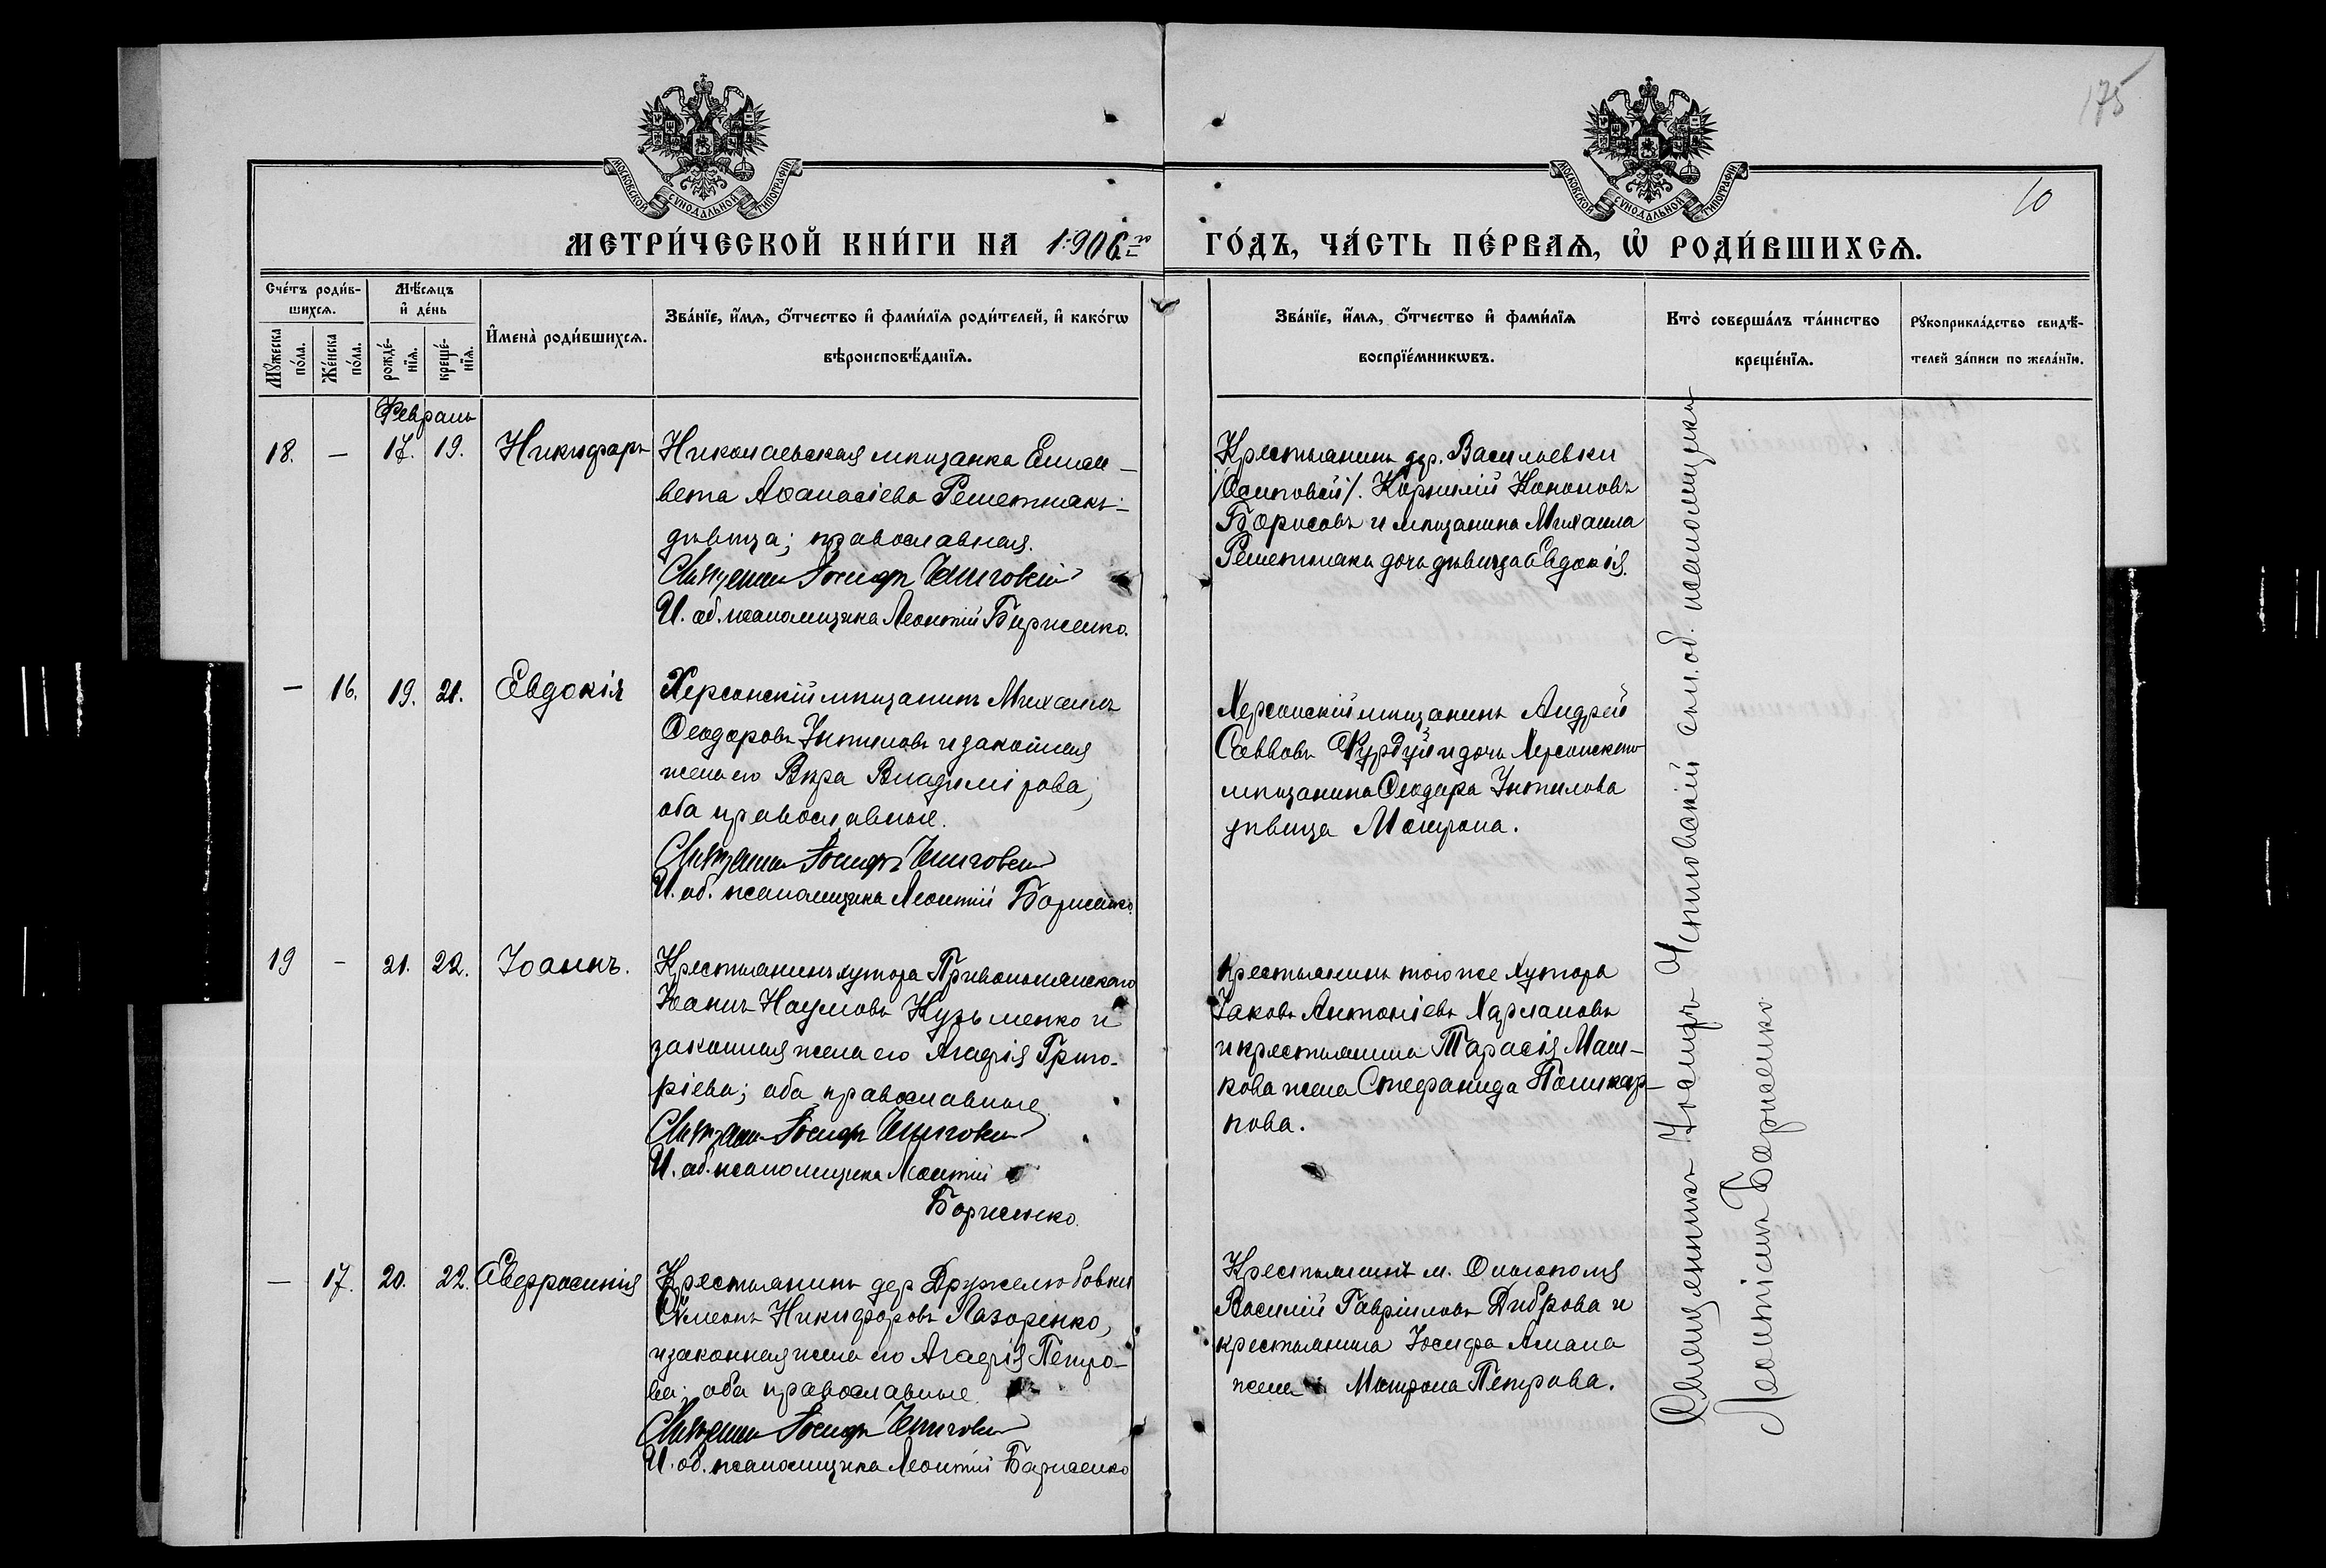 175
10
МОСКОВСКОЙ СѴНОДАЛЬНОЙ ТИПОГРАФІИ
МОСКОВСКОЙ СѴНОДАЛЬНОЙ ТИПОГРАФІИ
МЕТРИ́ЧЕСКОЙ КНИ́ГИ НА 1906 г҃ѡ ГО́ДЪ, ЧА́СТЬ ПЕ́РВАѦ, Ѡ҆ РОДИ́ВШИХСѦ.
Сче́тъ роди́в-
шихсѧ.
Мꙋ́жеска по́ла.
Же́нска по́ла.
Мѣ́сѧцъ
и҆ де́нь
рожде́-
нїѧ.
креще́-
нїѧ.
И҆мена̀ роди́вшихсѧ.
Зва́нїе, и҆́мѧ, ѻ҆́тчество и҆ фами́лїѧ роди́телей, и҆ како́гѡ
вѣроисповѣ́данїѧ.
Зва́нїе, и҆́мѧ, ѻ҆́тчество и҆ фами́лїѧ
воспрїе́мникѡвъ.
Кто̀ соверша́лъ та́инство
креще́нїѧ.
Рꙋкоприкла́дство свидѣ́-
телей за́писи по жела́нїю.
Февраль
18. — 17. 19. Никифоръ
Николаевская мѣщанка Елиса-
вета Аѳанасіева Решетнякъ-
дѣвица; православная.
Священникъ Іосифъ
И. об. псаломщика Леонтій Борисенко.
Крестьянинъ дер. Васильевки
/Осиповой/. Корнилій Кононовъ
Борисовъ и мѣщанина Михаила
Решетнякъ дочь дѣвица Евдокія.
— 16. 19. 21. Евдокія
Херсонскій мѣщанинъ Михаилъ
Ѳеодоровъ и законная
жена его Вѣра Владимірова,
оба православные.
Священникъ Іосифъ
И. об. псаломщика Леонтій Борисенко.
Херсонскій мѣщанинъ Андрей
Саввовъ и дочь Херсонскаго
мѣщанина Ѳеодора
дѣвица Матрона.
19 — 21. 22. Іоаннъ.
Крестьянинъ хутора Привольнянскаго
Іоаннъ Наумовъ Кузьменко и
законная жена его Агафія Григо-
ріева; оба православные
Священникъ Іосифъ
И. об. псаломщика Леонтій
Борисенко.
Крестьянинъ того же хутора
Іаковъ Антоніевъ Харлановъ
и крестьянина Тарасія Маш-
кова жена Стефанида Поликар-
пова.
— 17. 20. 22. Евфросинія
Крестьянинъ дер Дружелюбовки
Сѵмеонъ Никифоровъ Лазоренко,
и законная жена его Агафія Петро-
ва; оба православные
Священникъ Іосифъ
И. об. псаломщика Леонтій Борисенко
Крестьянинъ м. Ольгополя
Василій Гавріиловъ Диброва и
крестьянина Іосифа
жена Матрона Петрова.
Священникъ Іосифъ и исп. об. псаломщика
Леонтій Борисенко